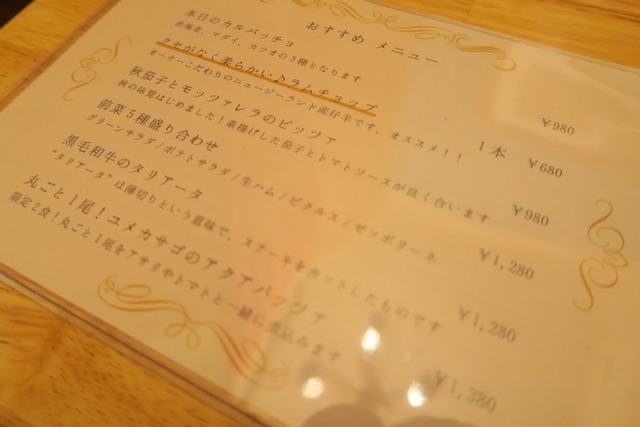 おすすめ メニュー
本日のカルパッチョ ¥980
赤海老、マダイ、カツオの3種となります
クセがなく柔らかい♪ラムチョップ 1本 ¥680
オーナーこだわりのニュージーランド産仔羊です、オススメ！！
秋茄子とモッツァレラのピッツァ ¥980
秋の味覚はじめました！素揚げした茄子とトマトソースが良く合います
前菜5種盛り合わせ ¥1,280
グリーンサラダ/ポテトサラダ/生ハム/ピクルス/ゼッポリーネ
黒毛和牛のタリアータ ¥1,280
"タリアータ"は薄切りという意味で、ステーキをカットしたものです
丸ごと1尾！ユメカサゴのアクアパッツァ ¥1,380
限定2食！丸ごと1尾をアサリやトマトと一緒に煮込みます